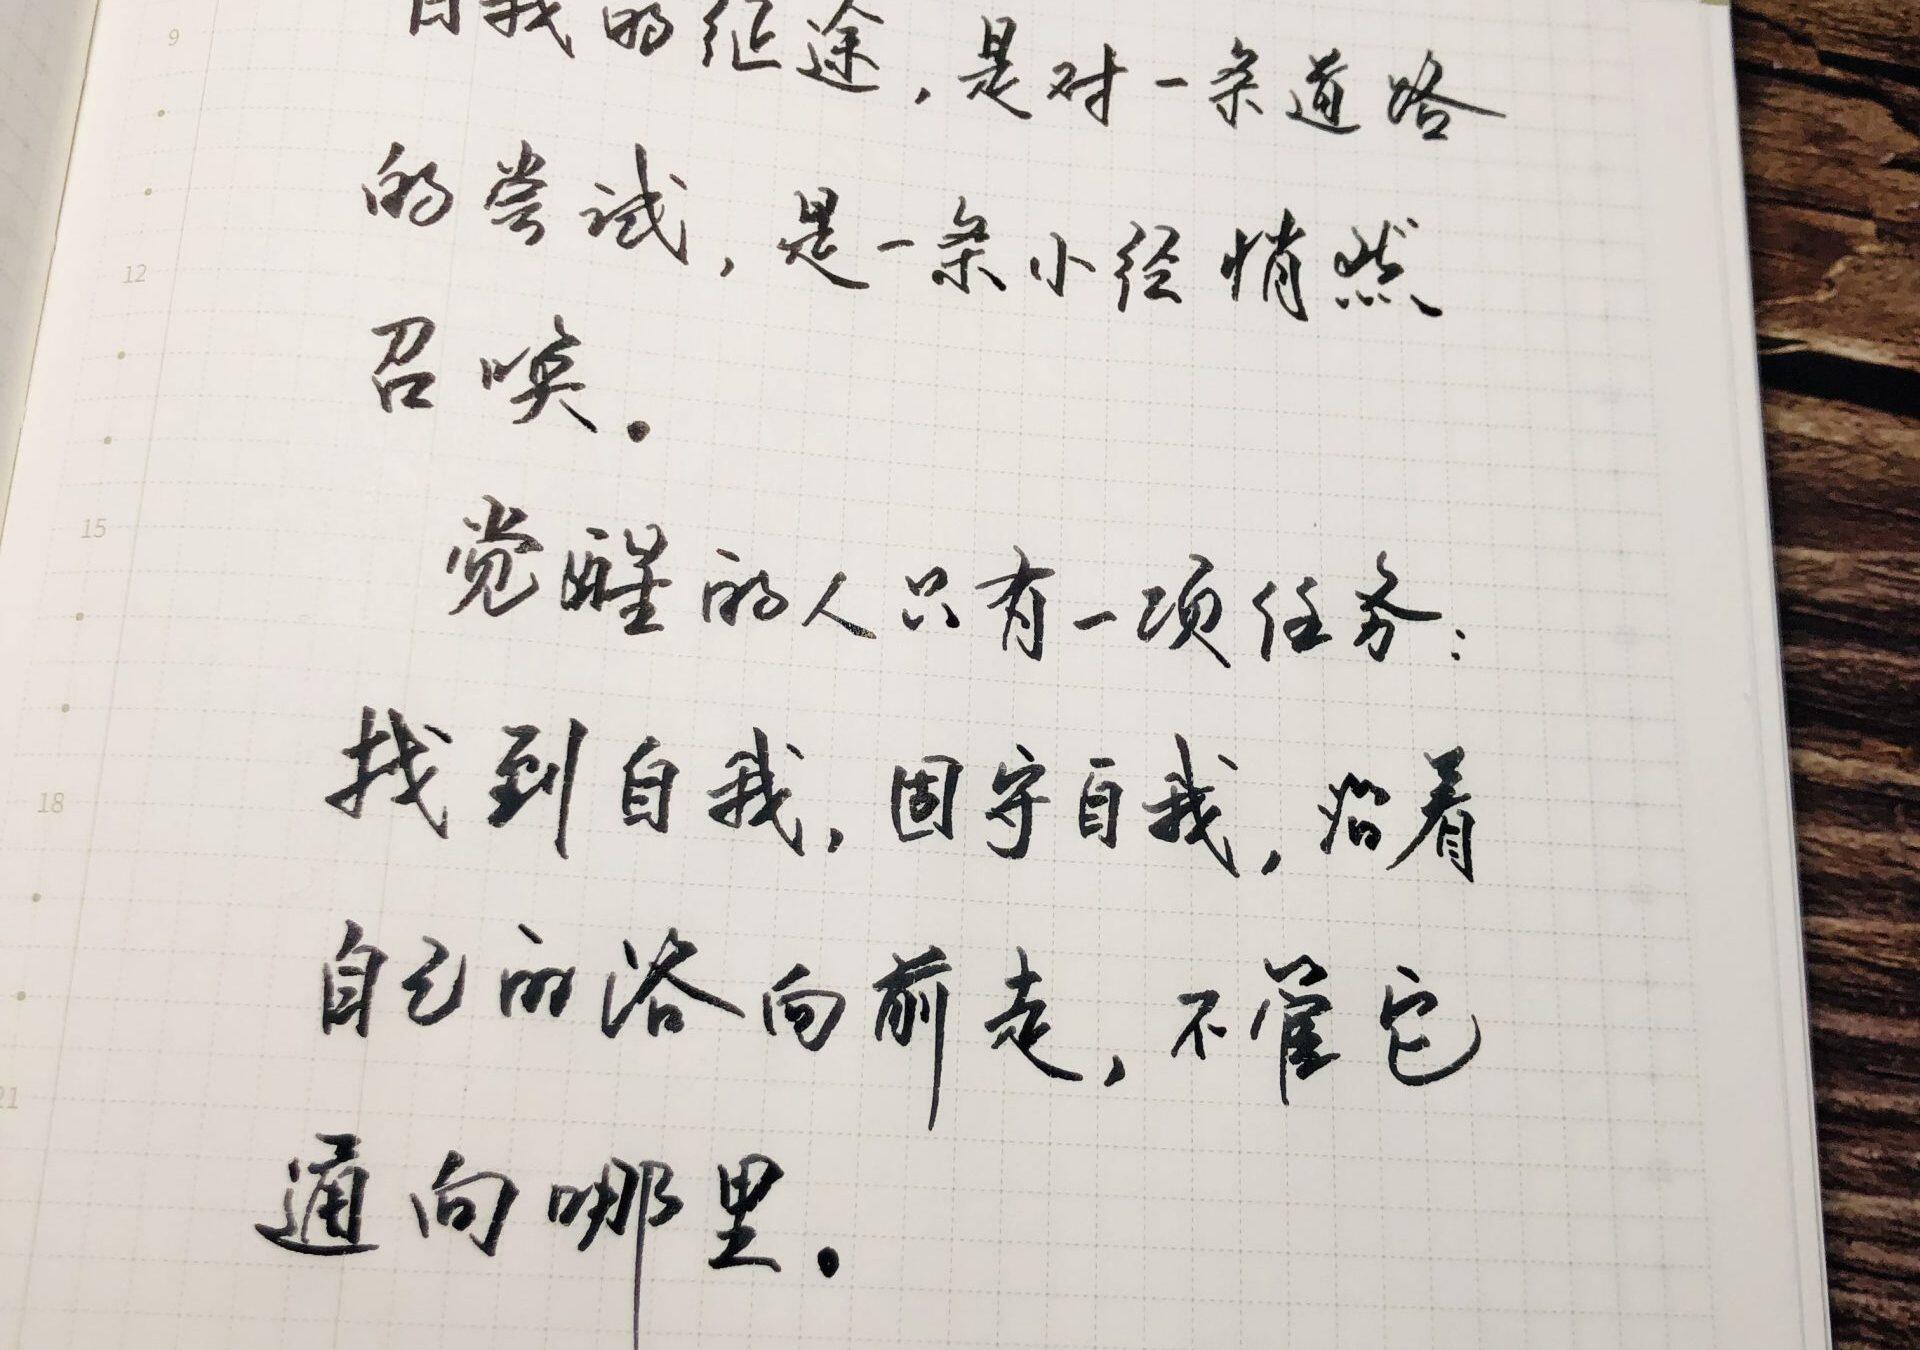 自我的征途,是对一条道路
的尝试,是一条小径悄然
召唤.
觉醒的人只有一项任务:
找到自我,固守自我,沿着
自己的路向前走,不管它
通向哪里.
9
12
15
18
21